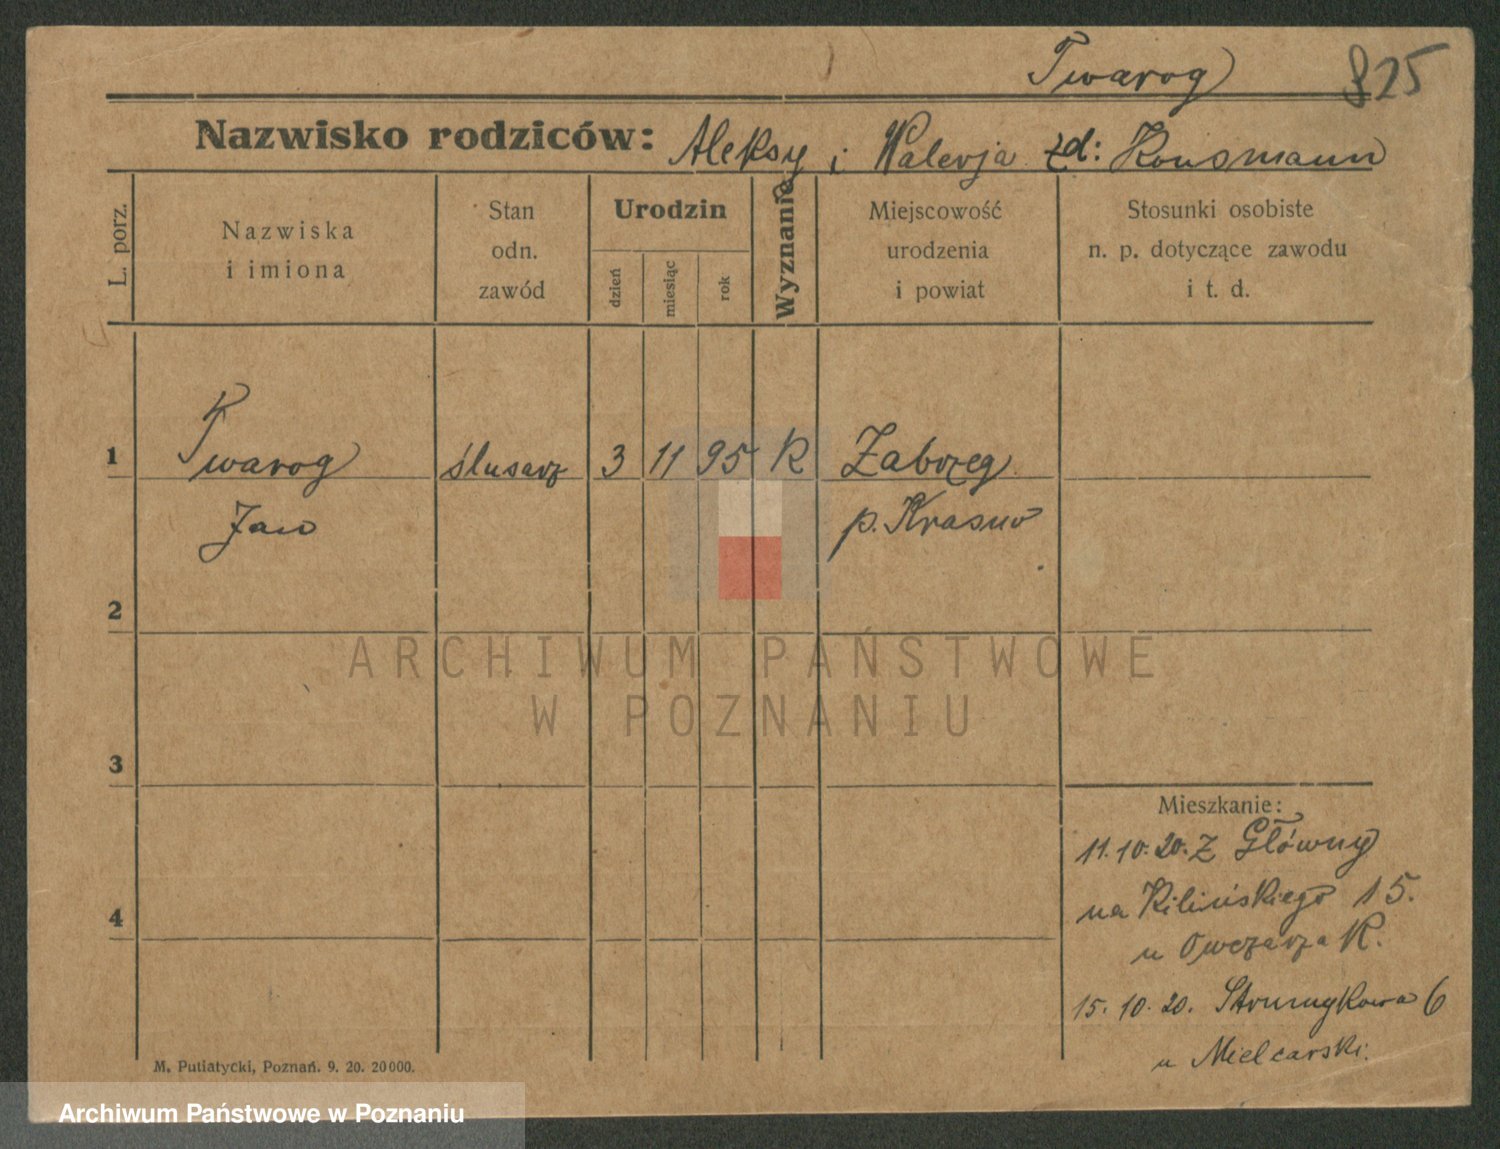 Twarog
825
Nazwisko rodziców: Aleksy i Walerja zd: Konsmann
L. porz.
Nazwiska
i imiona
Stan
odn.
zawód
Urodzin
dzień
miesiąc
rok
Wyznanie
Miejscowość
urodzenia
i powiat
Stosunki osobiste
n. p. dotyczące zawodu
i t. d.
1
Twarog ślusarz 3 11 95 R Zabrzeg
Jan p. Krasno
2
ARCHIWUM PAŃSTWOWE
W POZNANIU
3
Mieszkanie:
11. 10. 20. z Główny
na Kilińskiego 15.
4
u Owczarza K.
15. 10. 20. Strumykowa 6
u Mielcarski.
M. Putiatycki, Poznań. 9. 20. 20000.
Archiwum Państwowe w Poznaniu